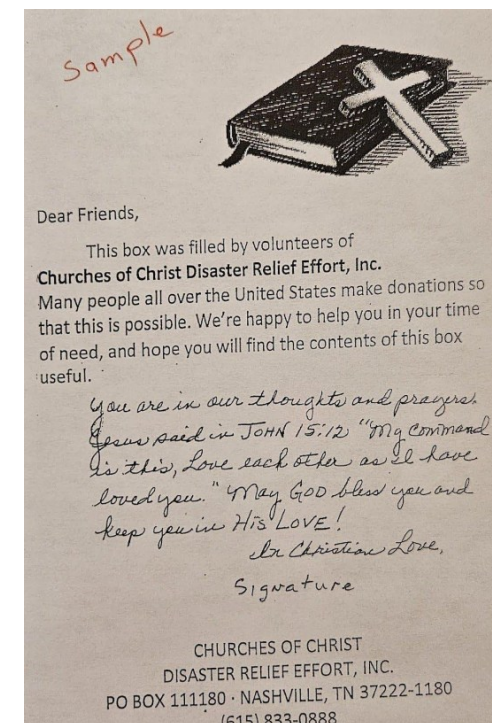 Sample
Dear Friends,
This box was filled by volunteers of
Churches of Christ Disaster Relief Effort, Inc.
Many people all over the United States make donations so
that this is possible. We're happy to help you in your time
of need, and hope you will find the contents of this box
useful.
You are in our thoughts and prayers.
Jesus said in JOHN 15:12 "My command
is this, Love each other as I have
loved you." May GOD bless you and
keep you in His LOVE!
In Christian Love,
Signature
CHURCHES OF CHRIST
DISASTER RELIEF EFFORT, INC.
PO BOX 111180 · NASHVILLE, TN 37222-1180
(615) 833-0888